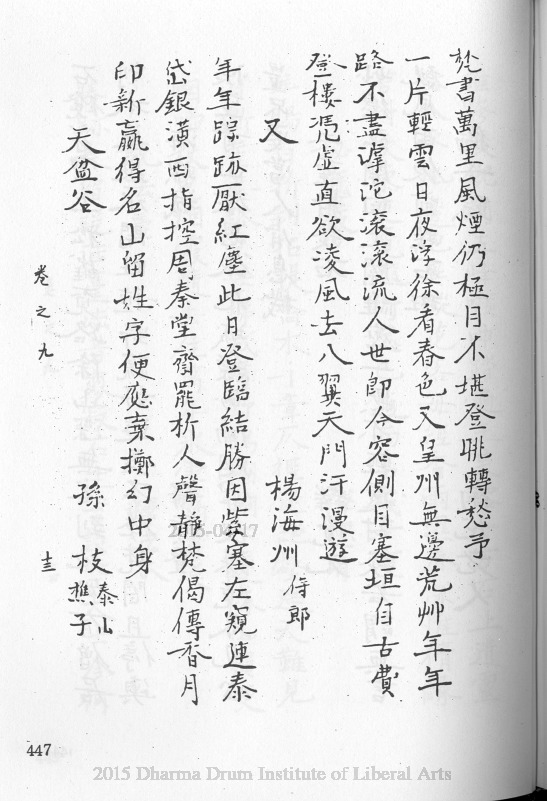 梵書萬里風煙仍極目不堪登眺轉愁予
一片輕雲日夜浮徐看春色又皇州無邊荒艸年年
路不盡滹沱滚滚流人世即今容側目塞垣自古費
登樓憑虛直欲凌風去八翼天門汗漫遊
又 楊海州 侍郎
年年踪跡厭紅塵此日登臨結勝因紫塞左窺連泰
岱銀潢西指控周秦堂齊罷析人聲靜梵偈傳香月
印新贏得名山留姓字便應棄擲幻中身
天盆谷 孫枝 泰山樵子
卷之九 十三
447
2015 Dharma Drum Institute of Liberal Arts